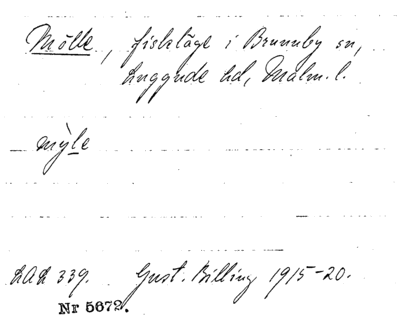 Mölle, fiskläge i Brunnby sn,
Luggude hd, Malm. l.
mỳle
LAL 339. Gust. Billing 1915-20.
Nr 5672.